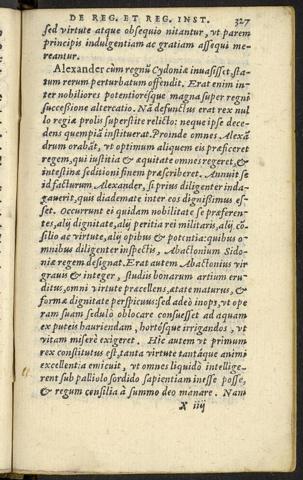 DE REG. ET REG. INST. 327
sed virtute atque obsequio nitantur, vt parem
principis indulgentiam ac gratiam assequi me-
reantur.
Alexander cùm regnũ Cydoniæ inuasisset, sta-
tum rerum perturbatum offendit. Erat enim in
ter nobiliores potentioresque magna super regni
successione altercatio. Nã defunctus erat rex nul
lo regiæ prolis superstite relicto: neque ipse dece-
dens quempiã instituerat. Proinde omnes Alexã
drum orabãt, vt optimum aliquem eis præficeret
regem, qui iustitia & æquitate omnes regeret, &
intestinæ seditioni finem præscriberet. Annuit se
id facturum Alexander, si prius diligenter inda-
gauerit, quis diademate inter eos dignissimus es-
set. Occurrunt ei quidam nobilitate se præferen-
tes, alij dignitate, alij peritia rei militaris, alij cõ-
silio ac virtute, alij opibus & potentia: quibus o-
mnibus diligenter inspectis, Abactonium Sido-
niæ regem designat. Erat autem Abactonius vir
grauis & integer, studiis bonarum artium eru-
ditus, omni virtute præcellens, ætate maturus, &
formæ dignitate perspicuus: sed adeò inops, vt ope
ram suam sedulò oblocare consuesset ad aquam
ex puteis hauriendam, hortósque irrigandos, vt
vitam miserè exigeret. Hic autem vt primum
rex constitutus est, tanta virtute tantáque animi
excellentia emicuit, vt omnes liquidò intellige-
rent sub palliolo sordido sapientiam inesse posse,
& regum consilia à summo deo manare. Nam
X iiij